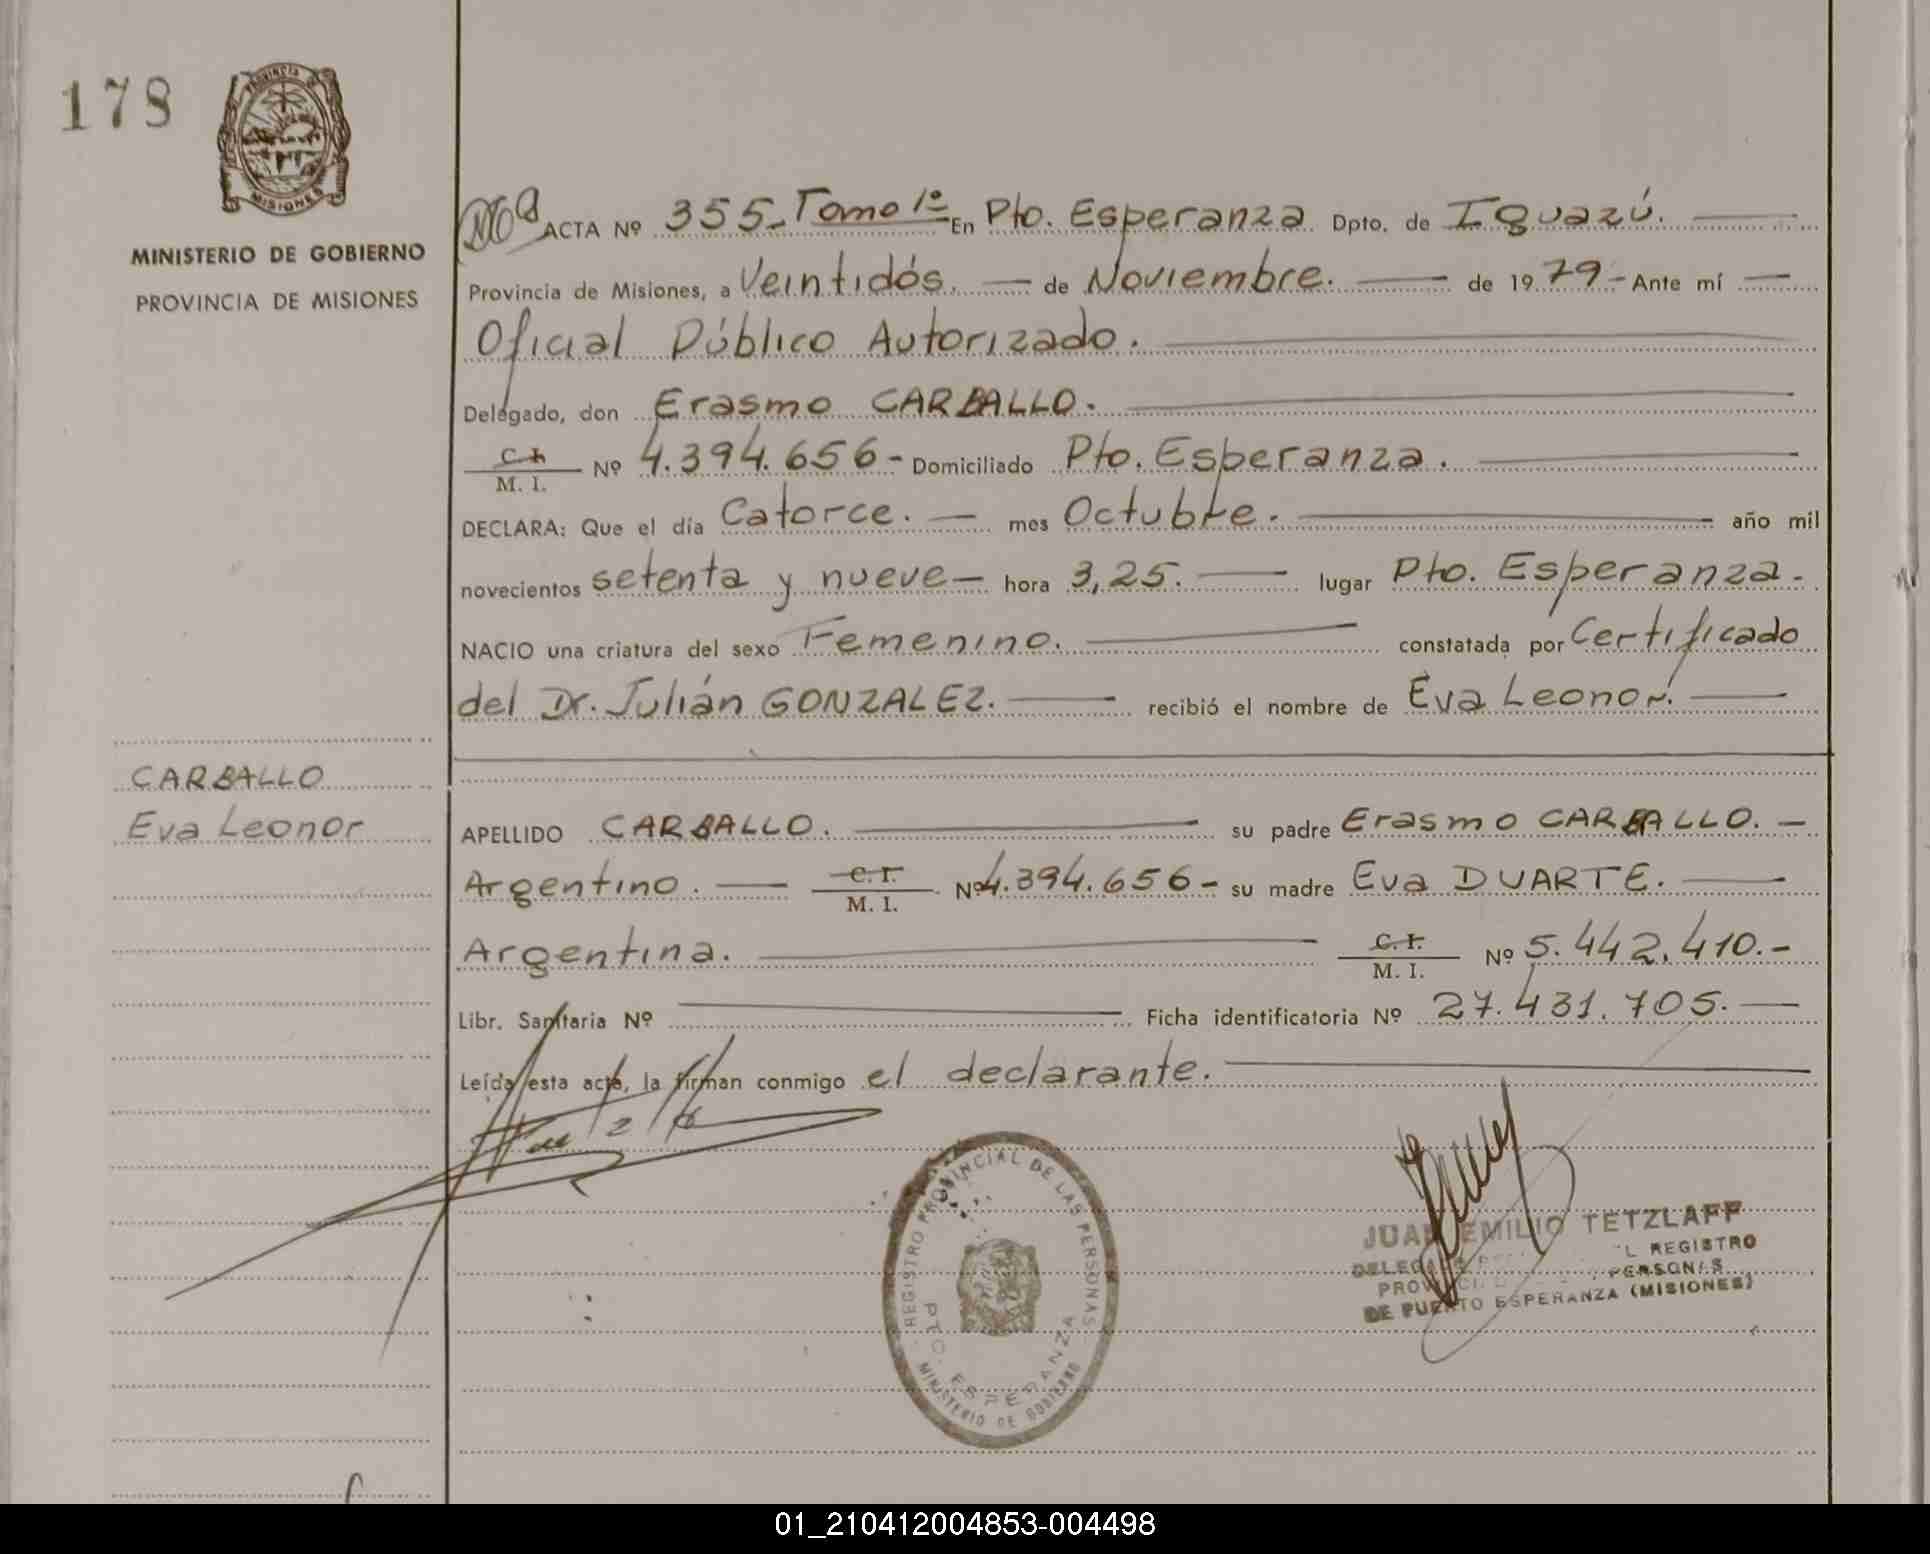 178
PROVINCIA
MISIONES
MINISTERIO DE GOBIERNO
PROVINCIA DE MISIONES
ACTA Nº 355- Tomo 1º En Pto. Esperanza Dpto. de Iguazú.
Provincia de Misiones, a Veintidós. de Noviembre. de 1979- Ante mí
Oficial Público Autorizado.
Delegado, don Erasmo CARBALLO.
C. I. / M. I. Nº 4.394.656- Domiciliado Pto. Esperanza.
DECLARA: Que el día Catorce. mes Octubre. año mil
novecientos setenta y nueve hora 3,25. lugar Pto. Esperanza.
NACIO una criatura del sexo Femenino. constatada por Certificado
del Dr. Julián GONZALEZ. recibió el nombre de Eva Leonor.
CARBALLO
Eva Leonor
APELLIDO CARBALLO. su padre Erasmo CARBALLO.
Argentino. C. I. / M. I. Nº 4.394.656- su madre Eva DUARTE.
Argentina. C. I. / M. I. Nº 5.442.410.-
Libr. Sanitaria Nº Ficha identificatoria Nº 27.431.705.
Leída esta acta, la firman conmigo el declarante.
REGISTRO PROVINCIAL DE LAS PERSONAS
PTO. ESPERANZA
MINISTERIO DE GOBIERNO
JUAN EMILIO TETZLAFF
REGISTRO
PERSONAS
DE PUERTO ESPERANZA (MISIONES)
01_210412004853-004498